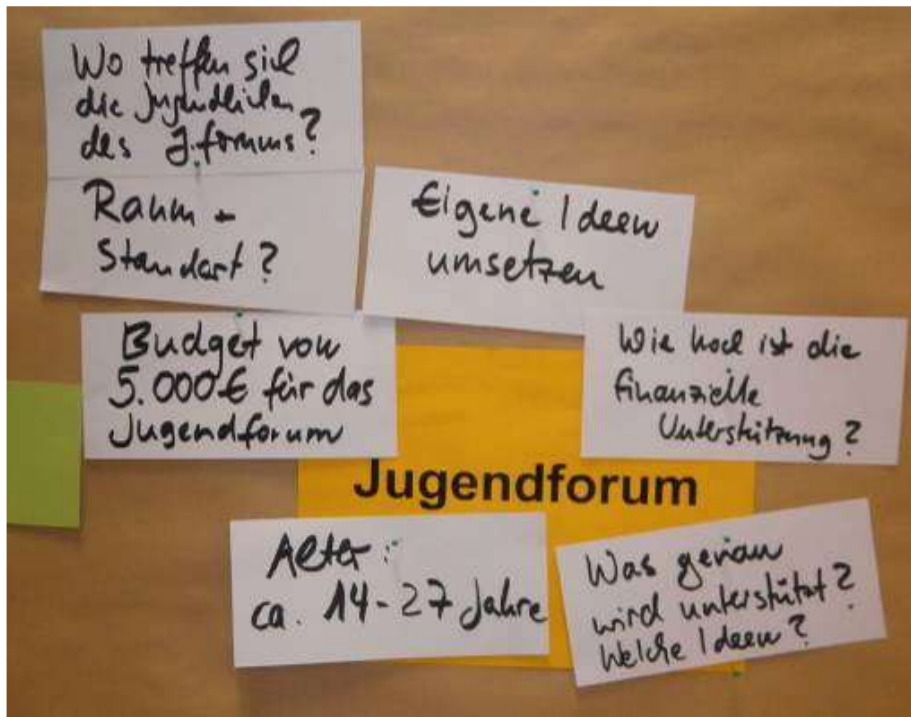 Wo treffen sich
die Jugendlichen
des J.forums?
Raum -
Standort?
Eigene Ideen
umsetzen
Budget von
5.000€ für das
Jugendforum
Wie hoch ist die
finanzielle
Unterstützung?
Jugendforum
Alter:
ca. 14-27 Jahre
Was genau
wird unterstützt?
Welche Ideen?